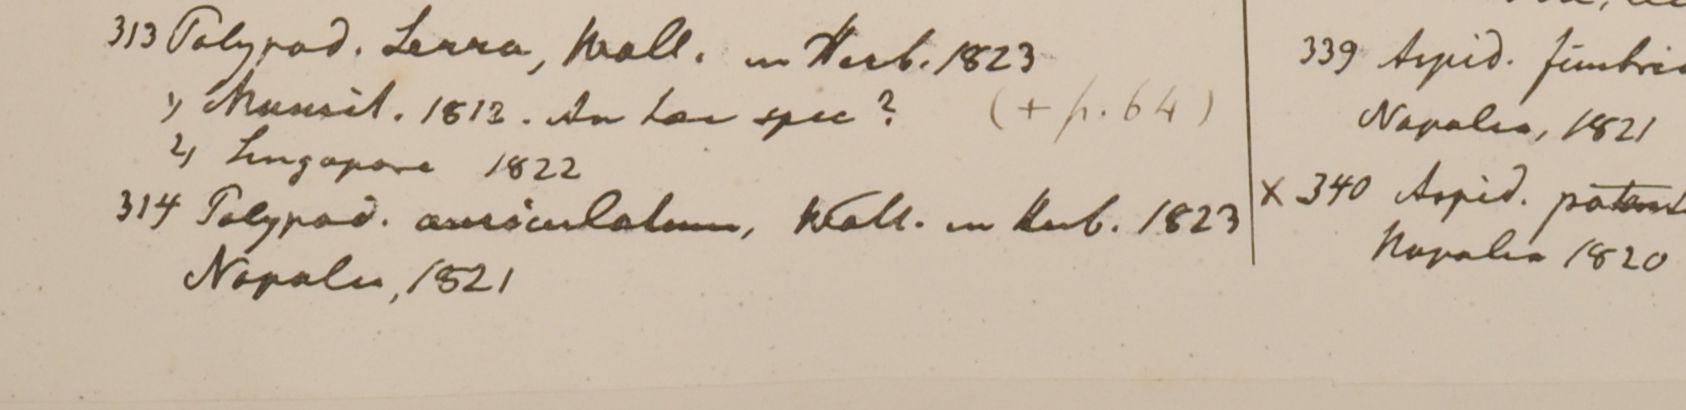 313 Polypod. Serra, Wall. in Herb. 1823
1, Mansil. 1812. An hæc spec? (+ p. 64)
2, Singapore 1822
314 Polypod. auriculatum, Wall. in Herb. 1823
Napalia, 1821
339 Aspid. fimbri
Napalia, 1821
x 340 Aspid. patent
Napalia 1820